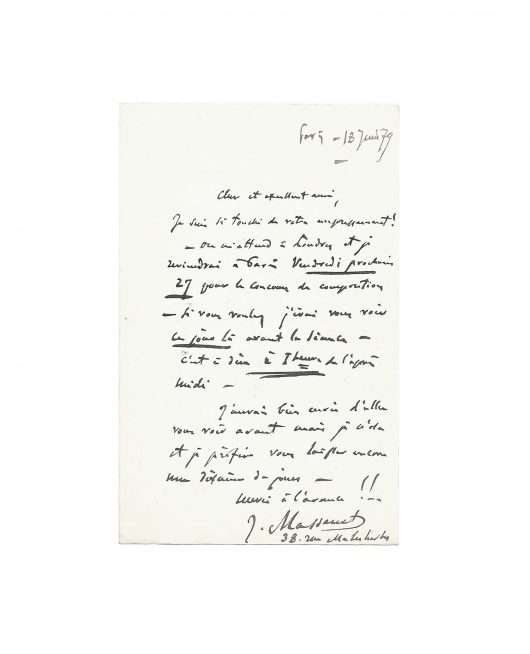 Paris - 18 Juin 79
Cher et excellent ami,
Je suis si touché de votre empressement!
- on m'attend à Londres et je
reviendrai à Paris Vendredi prochain
27 pour le concours de composition
- Si vous voulez j'irai vous voir
ce jour là avant la séance -
c'est à dire à 1 heure de l'après
midi -
J'aurais bien envie d'aller
vous voir avant mais je n'ose
et je préfère vous laisser encore
une dizaine de jours -
merci à l'avance!!-
J. Massenet
38. rue Malesherbes